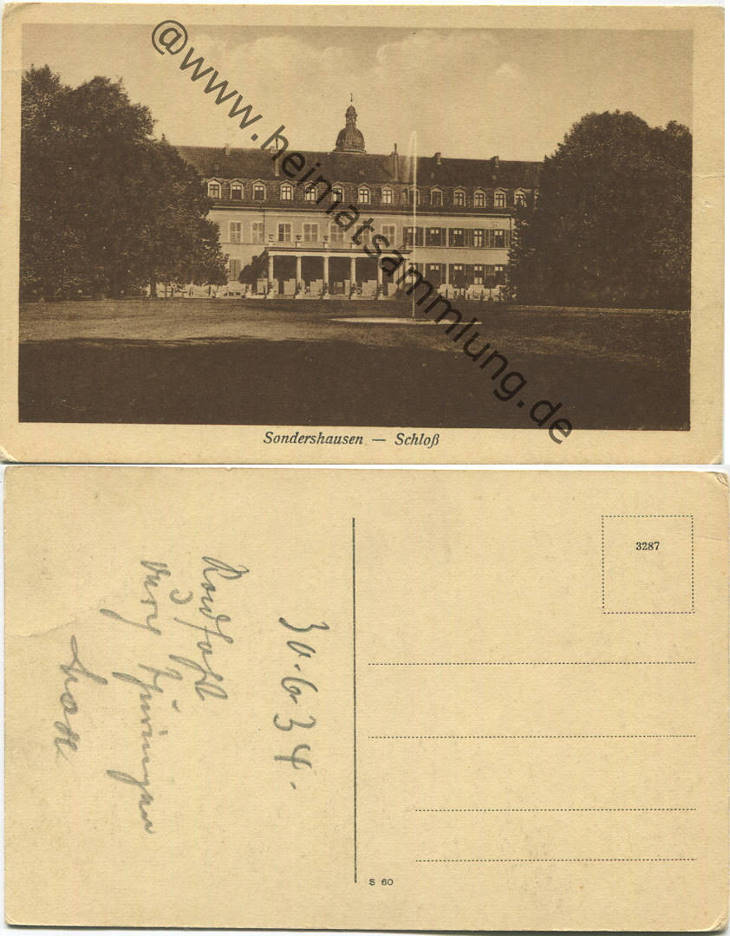 @www.heimatsammlung.de
Sondershausen — Schloß
3287
30.6.34.
Radfahrt
durch Thüringen
S 60